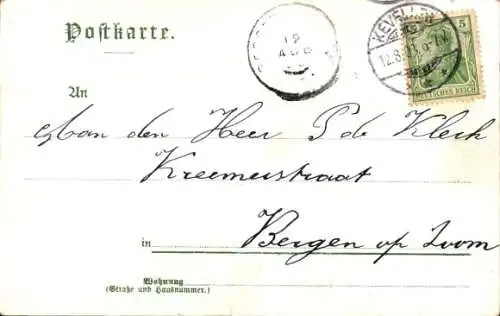 Postkarte.
12
AUG
KEVELAER
12.8.03.9-
5
DEUTSCHES REICH
An
Aan den Heer P de Klerk
Kremerstraat
in Bergen op Zoom
Wohnung
(Straße und Hausnummer.)